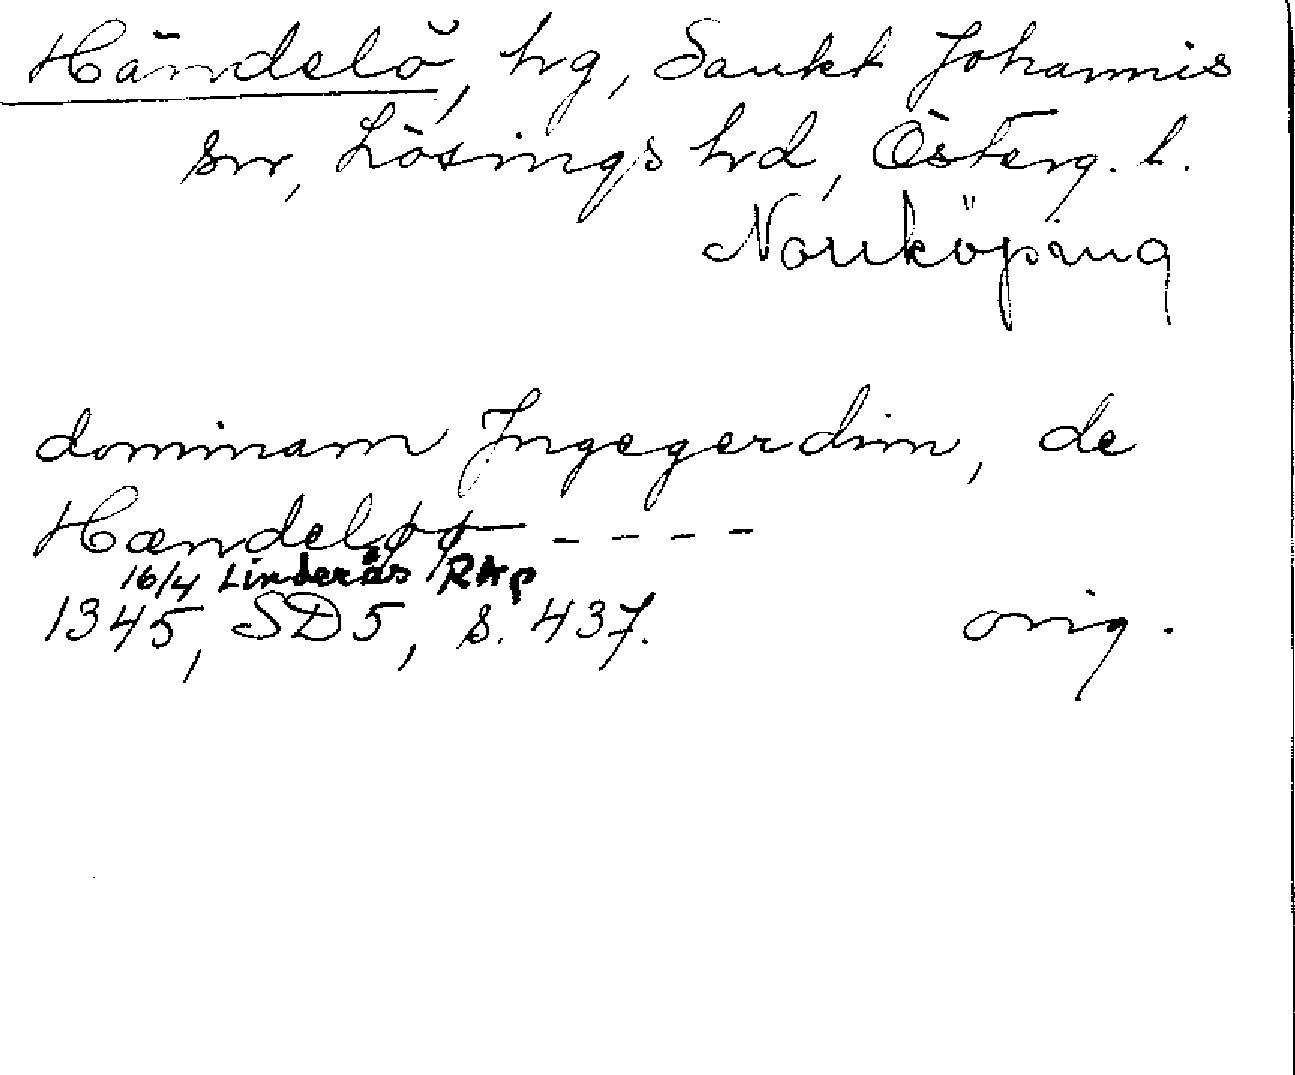 Händelö, hg, Sankt Johannis
sn, Lösings hd, Österg. l.
Norrköping
dominam Jngegerdim, de
Hændeløø - - - -
16/4 Linderås RAp
1345, SD5, s. 437. orig.